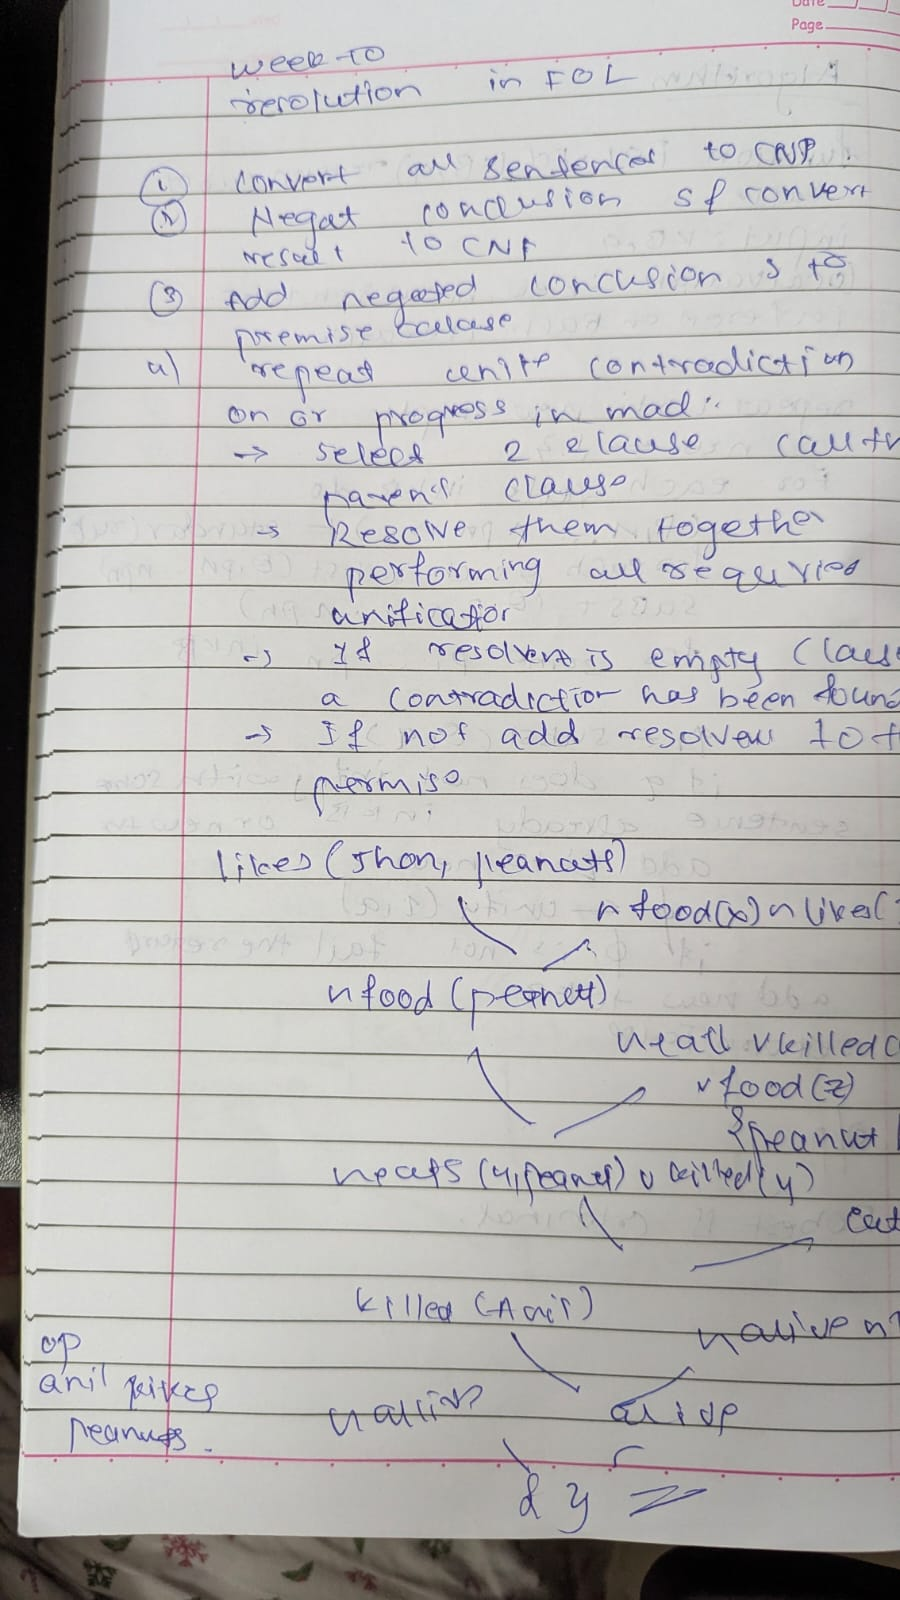 Date
Page
week-10
resolution in FOL
① convert all sentences to CNF.
② Negat conclusion & convert
result to CNF
③ Add negated conclusion s to
premise calase
4) repeat untill contradiction
on or progress in mad:
→ select 2 clause call th
parent clause
→ Resolve them together
performing all requried
unification
→ If resolvent is empty claus
a contradiction has been found
→ If not add resolven to t
permise
likes (Jhon, peanuts)
n food(x) n likes(
n food (peanett)
neatl v killed(
v food(z)
{peanut
neats (y, peanut) v killed(y)
eat
killed (Anil)
n alive n
op
anil likes
peanuts.
n alive
alive
{ }